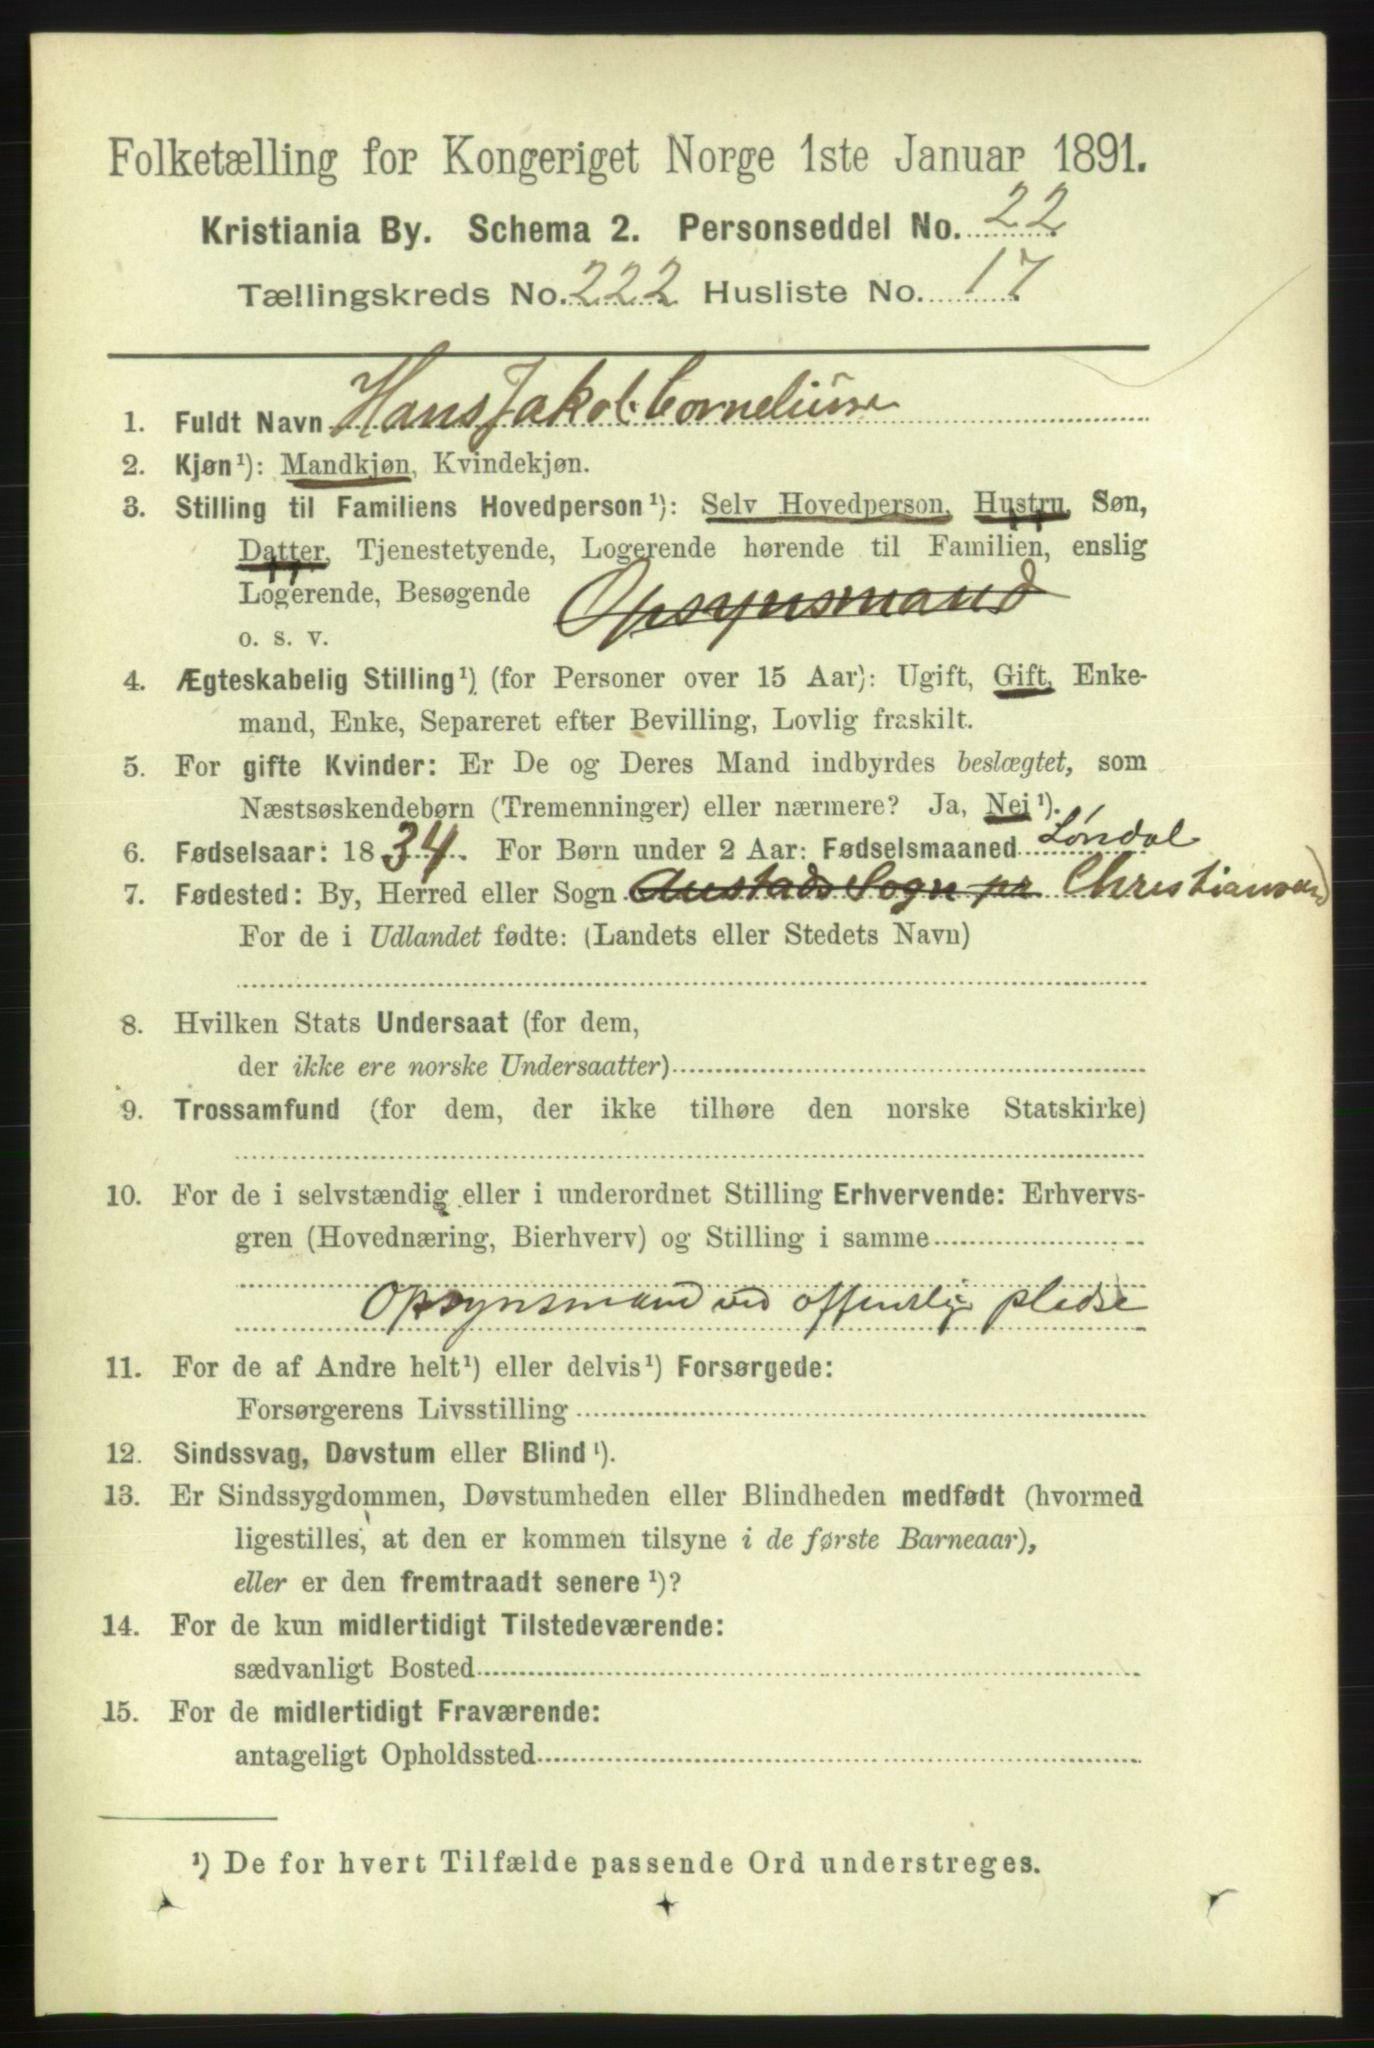 Folketælling for Kongeriget Norge 1ste Januar 1891.
Kristiania By. Schema 2. Personseddel No. 22
Tællingskreds No. 222 Husliste No. 17
1. Fuldt Navn Hans Jakob Corneliuse
2. Kjøn¹): Mandkjøn, Kvindekjøn.
3. Stilling til Familiens Hovedperson¹): Selv Hovedperson, Hustru, Søn,
Datter, Tjenestetyende, Logerende hørende til Familien, enslig
Logerende, Besøgende Opsynsmand
o. s. v.
4. Ægteskabelig Stilling¹) (for Personer over 15 Aar): Ugift, Gift, Enke-
mand, Enke, Separeret efter Bevilling, Lovlig fraskilt.
5. For gifte Kvinder: Er De og Deres Mand indbyrdes beslægtet, som
Næstsøskendebørn (Tremenninger) eller nærmere? Ja, Nei¹).
6. Fødselsaar: 1834. For Børn under 2 Aar: Fødselsmaaned Løndal
7. Fødested: By, Herred eller Sogn Austads Sogn pr Christiansand
For de i Udlandet fødte: (Landets eller Stedets Navn)
8. Hvilken Stats Undersaat (for dem,
der ikke ere norske Undersaatter)
9. Trossamfund (for dem, der ikke tilhøre den norske Statskirke)
10. For de i selvstændig eller i underordnet Stilling Erhvervende: Erhvervs-
gren (Hovednæring, Bierhverv) og Stilling i samme
Opsynsmand ved offenlige pladse
11. For de af Andre helt¹) eller delvis¹) Forsørgede:
Forsørgerens Livsstilling
12. Sindssvag, Døvstum eller Blind¹).
13. Er Sindssygdommen, Døvstumheden eller Blindheden medfødt (hvormed
ligestilles, at den er kommen tilsyne i de første Barneaar),
eller er den fremtraadt senere¹)?
14. For de kun midlertidigt Tilstedeværende:
sædvanligt Bosted
15. For de midlertidigt Fraværende:
antageligt Opholdssted
¹) De for hvert Tilfælde passende Ord understreges.